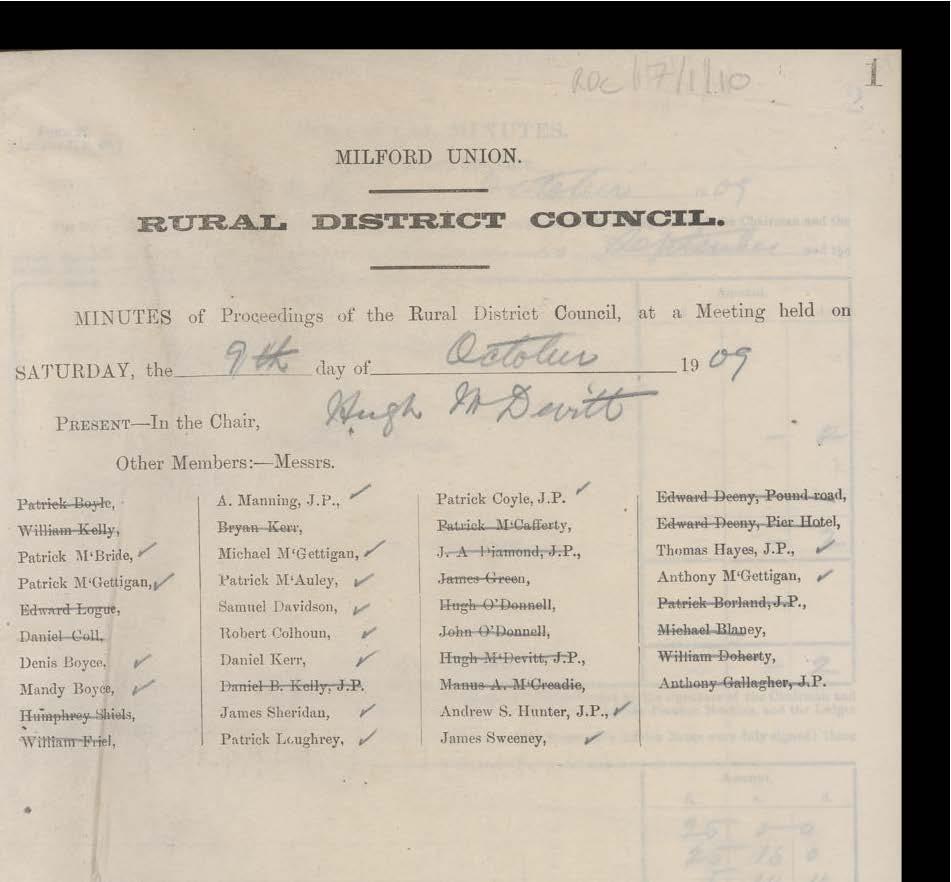 RDC/7/1/10
1
MILFORD UNION.
RURAL DISTRICT COUNCIL.
MINUTES of Proceedings of the Rural District Council, at a Meeting held on
SATURDAY, the 9th day of October 1909
PRESENT—In the Chair, Hugh McDevitt
Other Members:—Messrs.
Patrick Boyle,
William Kelly,
Patrick M'Bride, ✓
Patrick M'Gettigan, ✓
Edward Logue,
Daniel Coll,
Denis Boyce, ✓
Mandy Boyce, ✓
Humphrey Shiels,
William Friel,
A. Manning, J.P., ✓
Bryan Kerr,
Michael M'Gettigan, ✓
Patrick M'Auley, ✓
Samuel Davidson, ✓
Robert Colhoun, ✓
Daniel Kerr, ✓
Daniel B. Kelly, J.P.
James Sheridan, ✓
Patrick Loughrey, ✓
Patrick Coyle, J.P. ✓
Patrick M'Cafferty,
J. A Diamond, J.P.,
James Green,
Hugh O'Donnell,
John O'Donnell,
Hugh M'Devitt, J.P.,
Manus A. M'Creadie,
Andrew S. Hunter, J.P., ✓
James Sweeney, ✓
Edward Deeny, Pound road,
Edward Deeny, Pier Hotel,
Thomas Hayes, J.P., ✓
Anthony M'Gettigan, ✓
Patrick Borland, J.P.,
Michael Blaney,
William Doherty,
Anthony Gallagher, J.P.